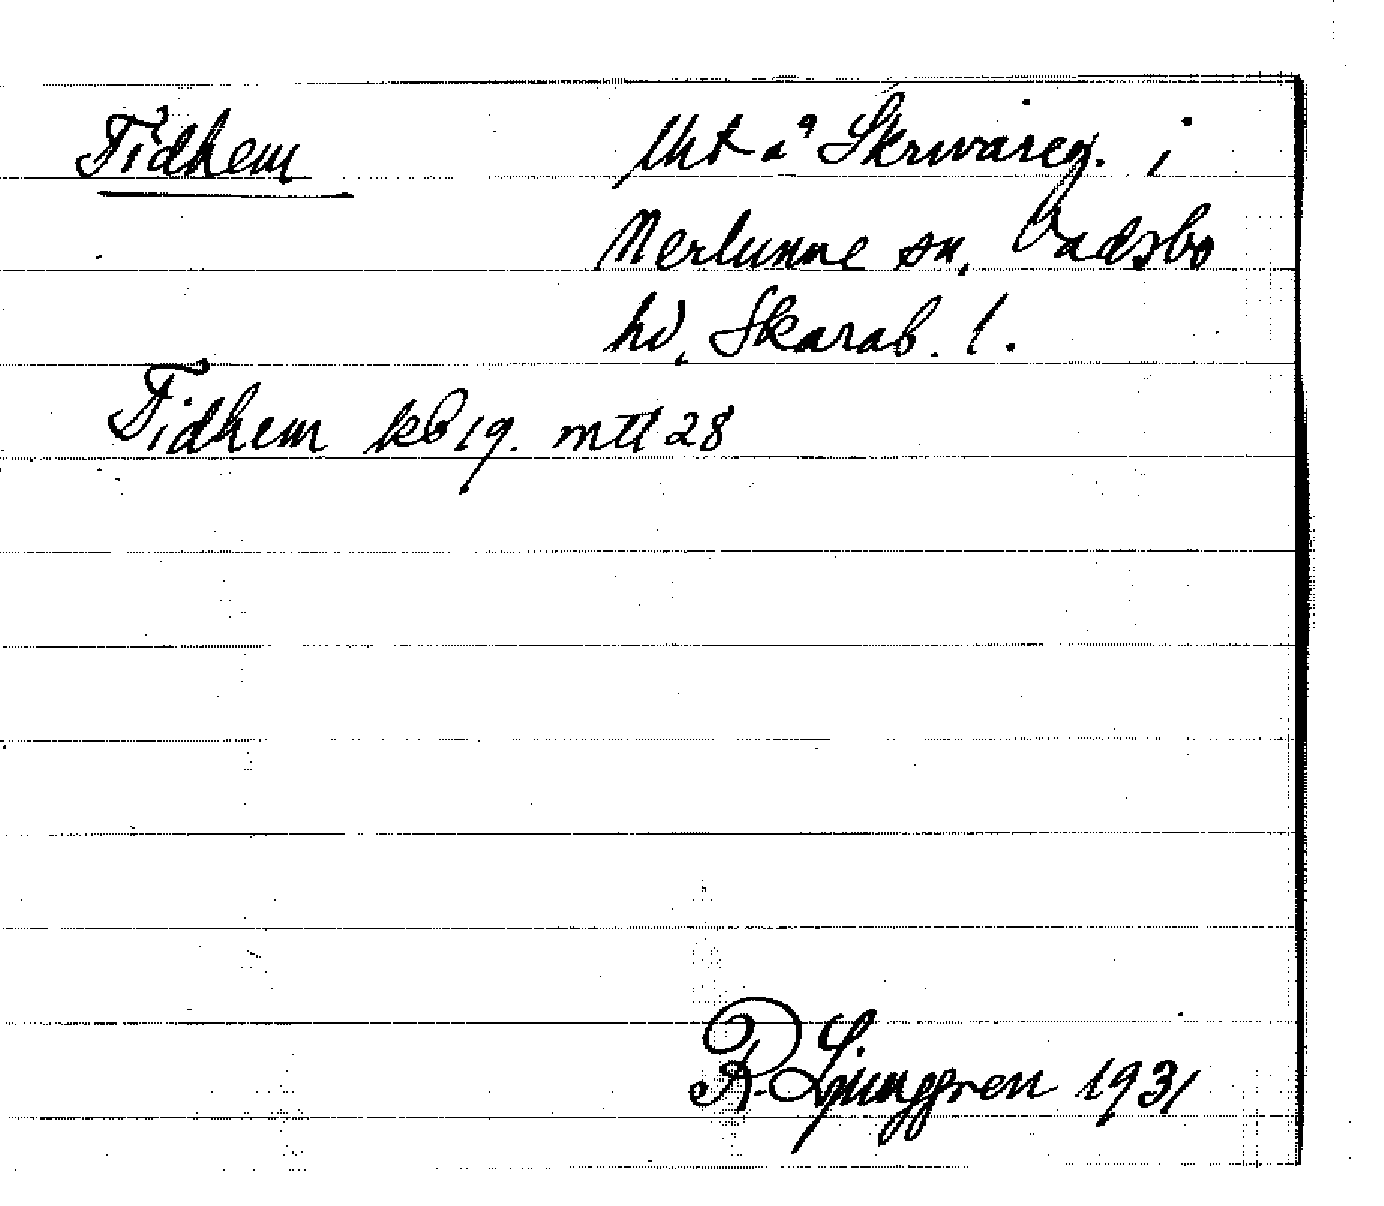 Fidhem Uht å Skrivareg. i
Nerlunne sn, Vadsbo
hd, Skarab. l.
Fidhem kb 19. mtl 28
R. Ljunggren 1931